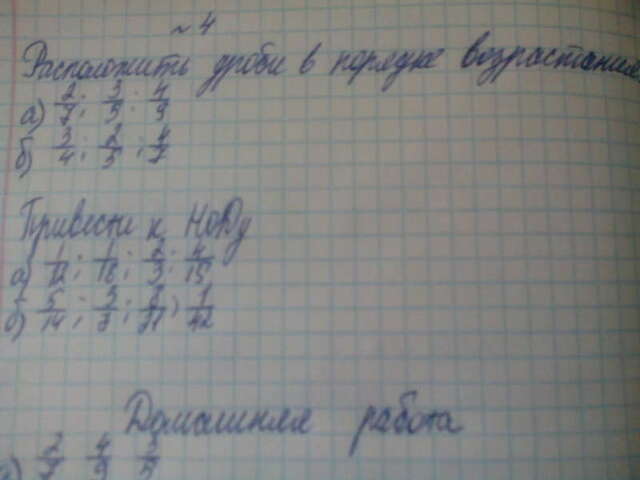 ~ 4
Расположить дроби в порядке возрастания
а) 2/7; 3/5; 4/9
б) 3/4; 2/5; 4/7
Привести к НОЗу
а) 1/12; 1/18; 2/3; 4/15
б) 5/14; 3/7; 2/21; 1/42
Домашняя работа
а) 2/7 4/9 3/5